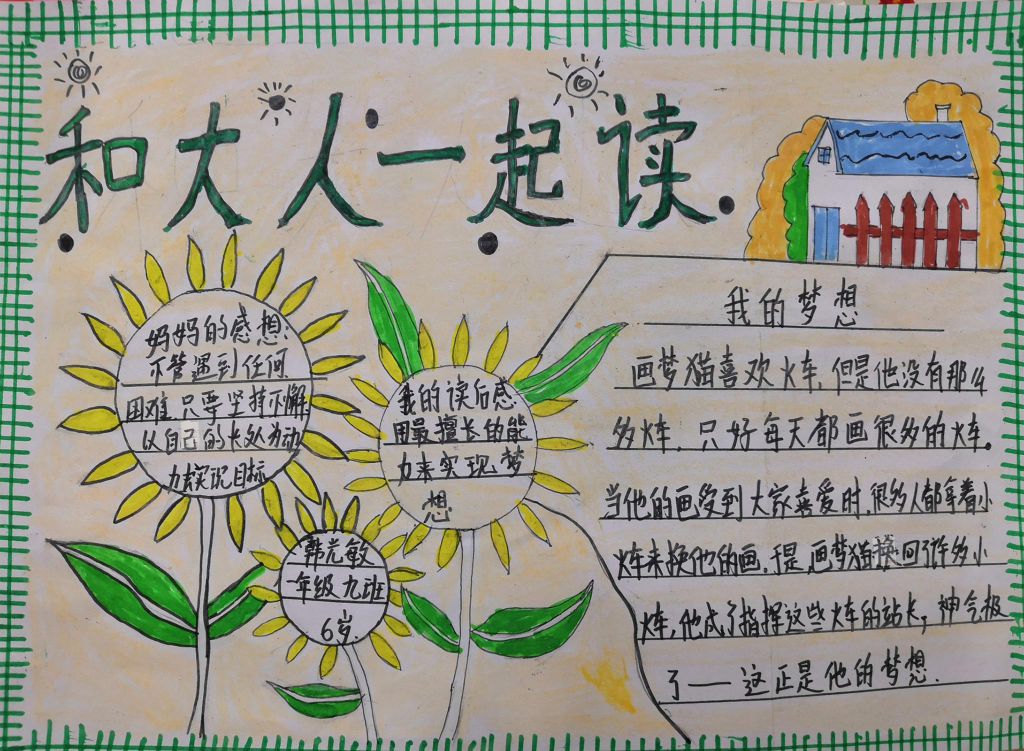 和大人一起读
妈妈的感想:
不管遇到任何
困难,只要坚持不懈
以自己的长处为动
力去实现目标
我的读后感
用最擅长的能
力来实现梦
想
韩光敏
一年级九班
6岁.
我的梦想
画梦猫喜欢火车,但是他没有那么
多火车,只好每天都画很多的火车。
当他的画受到大家喜爱时,很多人都拿着小
火车来换他的画.于是,画梦猫换回了许多小
火车,他成了指挥这些火车的站长,神气极
了——这正是他的梦想.